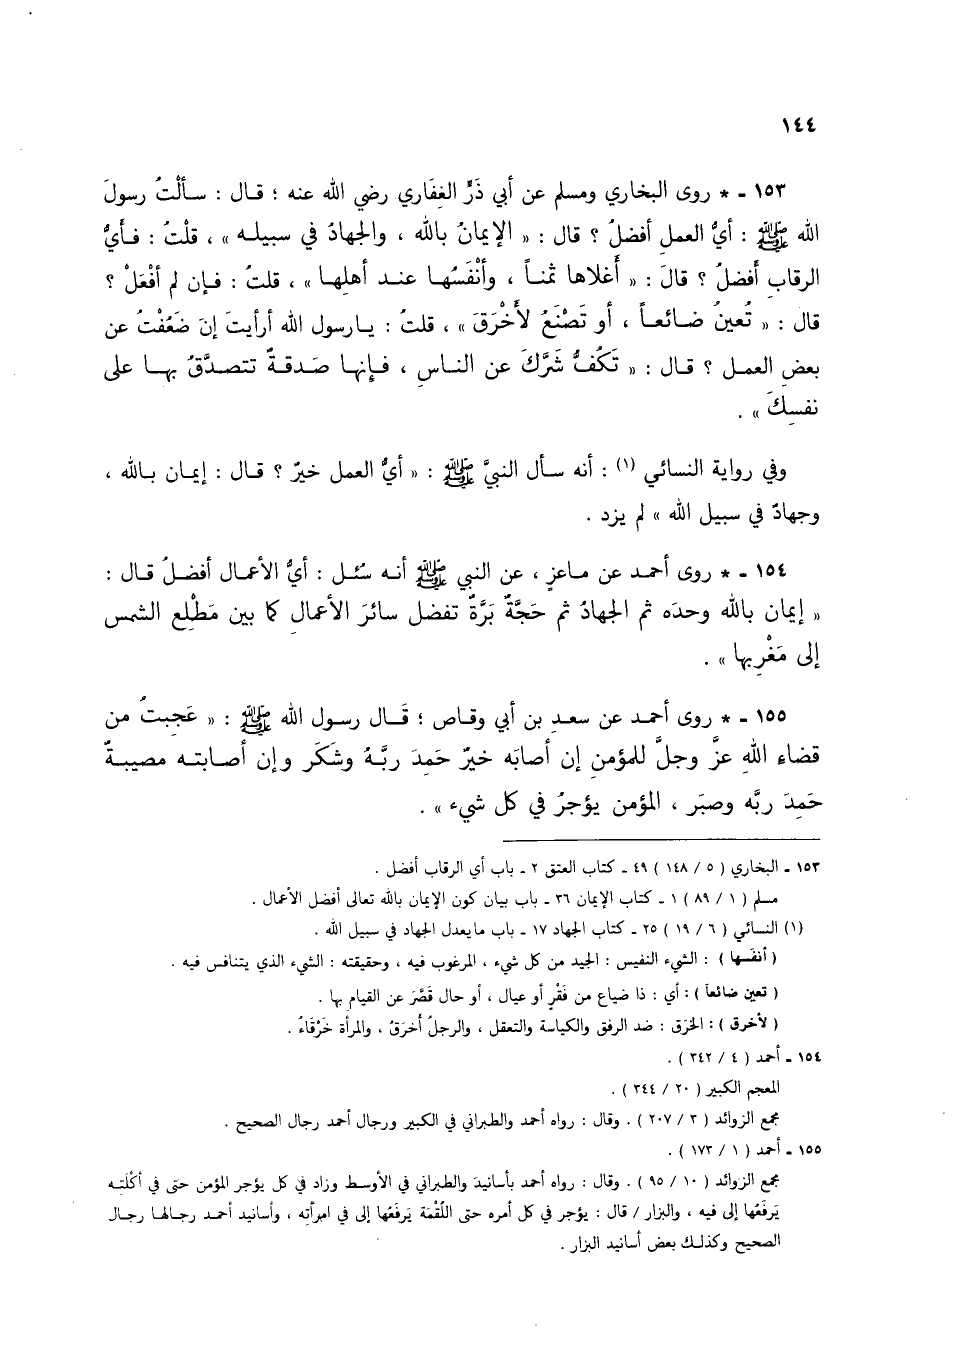 ١٤٤
١٥٣ ـ * روى البخاري ومسلم عن أبي ذَرٍّ الغِفَاري رضي الله عنه ؛ قـال : سـألْتُ رسولَ
الله ﷺ : أيُّ العملِ أفضلُ ؟ قال : « الإيمانُ بالله ، والجهادُ في سبيلـه » ، قلْتُ : فـأيُّ
الرقابِ أَفضلُ ؟ قالَ : « أَغلاها ثمنـاً ، وأنْفَسُهـا عنـد أهلِهـا » ، قلتُ : فـإن لم أفْعَلْ ؟
قال : « تُعينُ ضـائعـاً ، أو تَصْنَعُ لأَخْرَقَ » ، قلتُ : يـارسول الله أرأيتَ إنَ ضَعُفْتُ عن
بعضِ العمـل ؟ قـال : « تَكُفُّ شَرَّكَ عن النـاسِ ، فـإنهـا صَـدقـةٌ تتصـدَّقُ بهـا على
نفسِكَ » .
وفي رواية النسائي (١) : أنه سـأل النبيَّ ﷺ : « أيُّ العمل خيرٌ ؟ قـال : إيمـان بـالله ،
وجهادٌ في سبيل الله » لم يزد .
١٥٤ ـ * روى أحمـد عن مـاعزٍ ، عن النبي ﷺ أنـه سُئـل : أيُّ الأعمـال أفضـلُ قـال :
« إيمان بالله وحدَه ثم الجهادُ ثم حَجَّةٌ بَرَّةٌ تفضل سائرَ الأعمالِ كما بين مَطْلِع الشمس
إلى مَغْرِبها » .
١٥٥ ـ * روى أحمـد عن سعـدِ بن أبي وقـاص ؛ قَـال رسـول الله ﷺ : « عَجِبتُ من
قضاء اللهِ عزَّ وجلَّ للمؤمنِ إن أصابَه خيرٌ حَمِدَ ربَّـهُ وشَكَر وإن أصـابتـه مصيبـةٌ
حَمِدَ ربَّه وصبَر ، المؤمن يؤجرُ في كل شيء » .
١٥٣ ـ البخاري ( ٥ / ١٤٨ ) ٤٩ ـ كتاب العتق ٢ ـ باب أي الرقاب أفضل .
مسلم ( ١ / ٨٩ ) ١ ـ كتاب الإيمان ٣٦ ـ باب بيان كون الإيمان بالله تعالى أفضل الأعمال .
(١) النسائي ( ٦ / ١٩ ) ٢٥ ـ كتاب الجهاد ١٧ ـ باب مايعدل الجهاد في سبيل الله .
( أنفَسها ) : الشيء النفيس : الجيد من كل شيء ، المرغوب فيه ، وحقيقته : الشيء الذي يتنافس فيه .
( تعين ضائعاً ) : أي : ذا ضياع من فَقْرٍ أو عيال ، أو حال قَصَّرَ عن القيام بها .
( لأخرق ) : الخرَق : ضد الرفق والكياسة والتعقل ، والرجلُ أخرَقُ ، والمرأة خَرْقَاءُ .
١٥٤ ـ أحمد ( ٤ / ٣٤٢ ) .
المعجم الكبير ( ٢٠ / ٣٤٤ ) .
مجمع الزوائد ( ٣ / ٢٠٧ ) . وقال : رواه أحمد والطبراني في الكبير ورجال أحمد رجال الصحيح .
١٥٥ ـ أحمد ( ١ / ١٧٣ ) .
مجمع الزوائد ( ١٠ / ٩٥ ) . وقال : رواه أحمد بأسانيدَ والطبراني في الأوسـط وزاد في كل يؤجر المؤمن حتى في أكْلَتِـه
يَرفَعُها إلى فيه ، والبزار / قال : يؤجر في كل أمره حتى اللُقْمَة يَرفَعُها إلى في امرأتِه ، وأسانيد أحمـد رجـالهـا رجـال
الصحيح وكذلـك بعض أسانيد البزار .